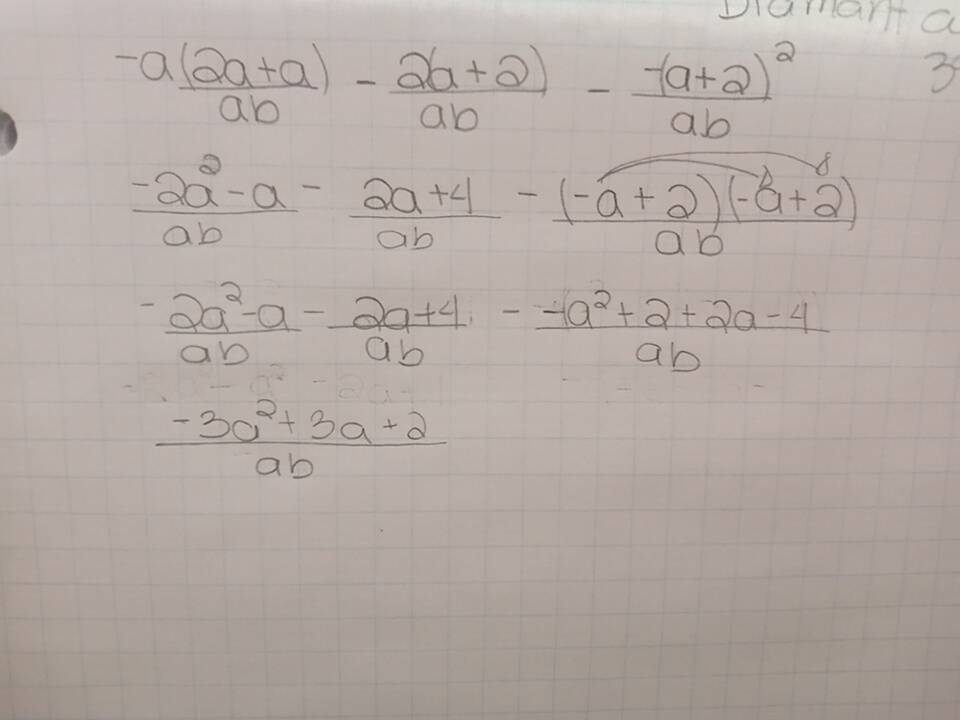 Diamant a
-a(2a+a)/ab - 2(a+2)/ab - -(a+2)²/ab
3
-2a²-a/ab - 2a+4/ab - (-a+2)(-a+2)/ab
-2a²-a/ab - 2a+4/ab - -a²+2+2a-4/ab
-3a²+3a+2/ab